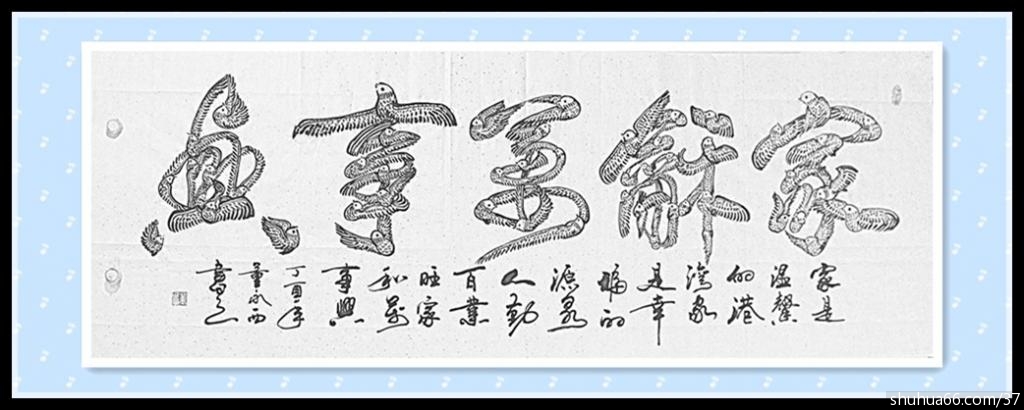 家龢萬事興
家是
温馨
的港
湾家
是幸
福的
源泉
人勤
百業
旺家
和萬
事興
丁酉年
董永西
書之
shuhua66.com/37